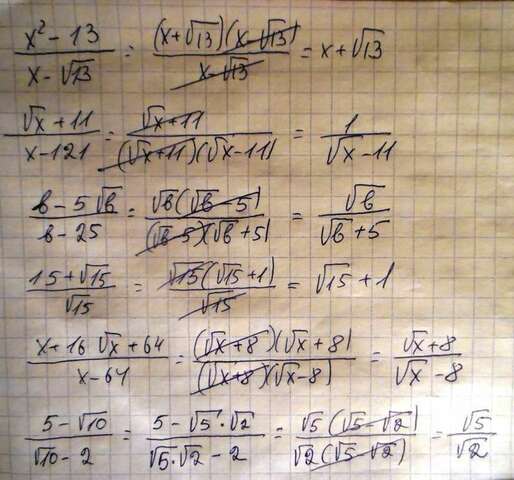 (x² - 13)/(x - √13) = ((x + √13)(x - √13))/(x - √13) = x + √13
(√x + 11)/(x - 121) = (√x + 11)/((√x + 11)(√x - 11)) = 1/(√x - 11)
(в - 5√в)/(в - 25) = (√в(√в - 5))/((√в - 5)(√в + 5)) = √в/(√в + 5)
(15 + √15)/√15 = (√15(√15 + 1))/√15 = √15 + 1
(x + 16√x + 64)/(x - 64) = ((√x + 8)(√x + 8))/((√x + 8)(√x - 8)) = (√x + 8)/(√x - 8)
(5 - √10)/(√10 - 2) = (5 - √5·√2)/(√5·√2 - 2) = (√5(√5 - √2))/(√2(√5 - √2)) = √5/√2